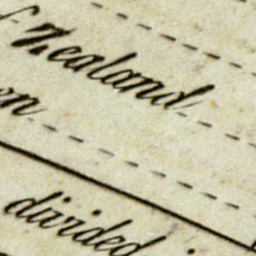 f Zealand
en
divided